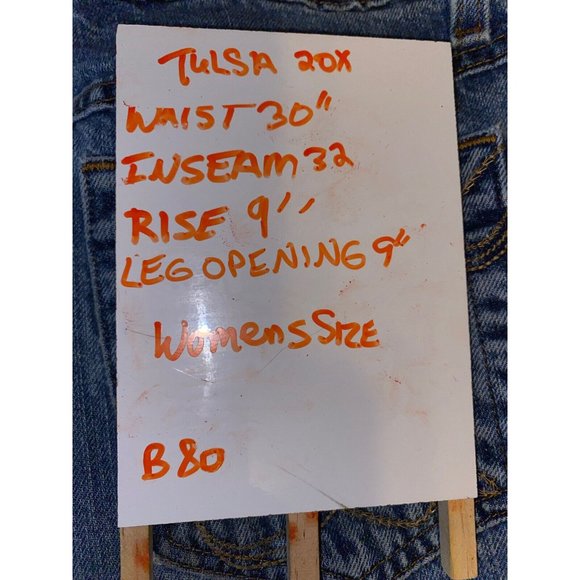 TULSA 20X
WAIST 30"
INSEAM 32
RISE 9"
LEG OPENING 9"
Womens SIZE
B80